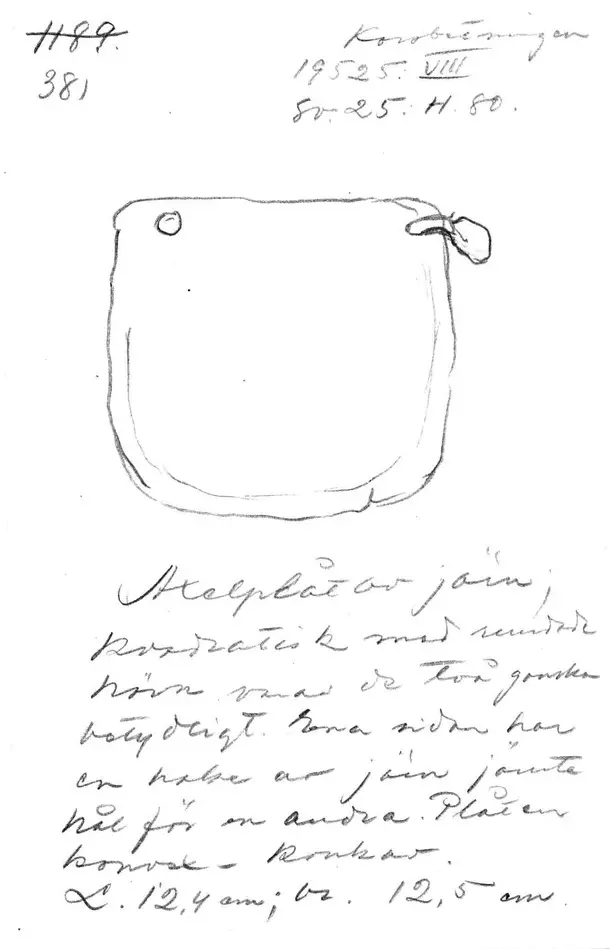 1189.
381
Korsbetningen
19525: VIII
Gr. 25. H. 80.
Axelplåt av järn;
kvadratisk med rundade
hörn varav de två ganska
betydligt. Ena sidan har
en hake av järn jämte
hål för en andra. Plåten
konvex-konkav.
L. 12,4 cm; br. 12,5 cm.